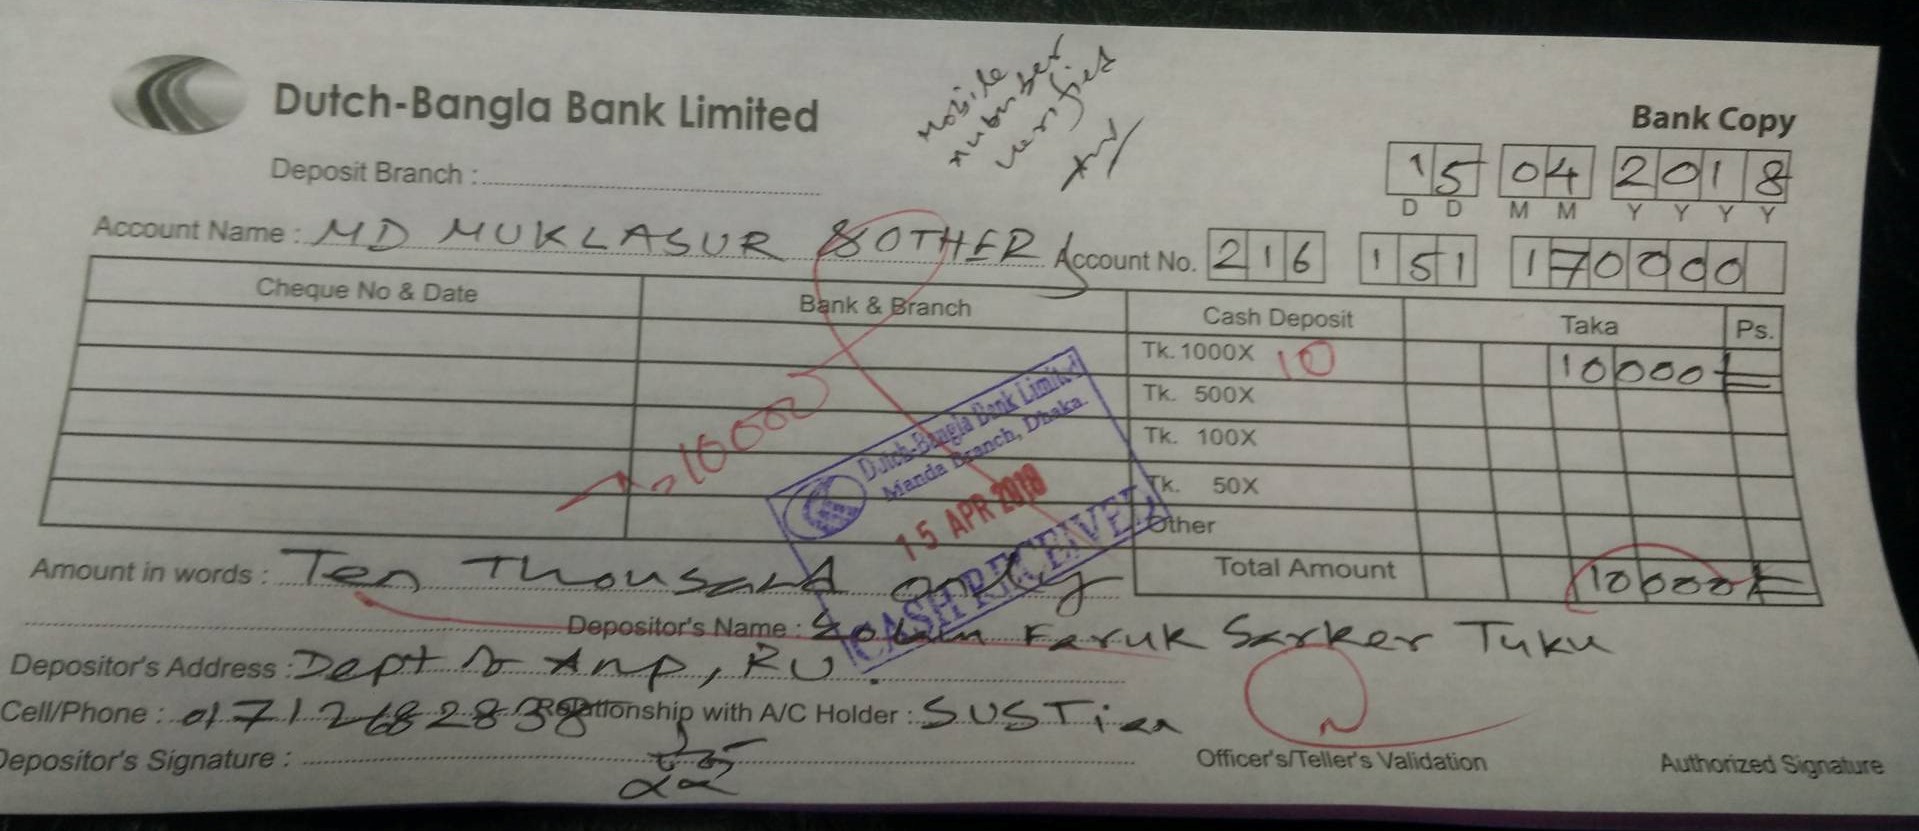 Dutch-Bangla Bank Limited
Mobile
number
verified
Bank Copy
Deposit Branch :
15 04 2018
D D M M Y Y Y Y
Account Name : MD MUKLASUR & OTHER Account No. 216 151 170000
Cheque No & Date Bank & Branch Cash Deposit Taka Ps.
Tk. 1000X 10 10000/=
Tk. 500X
10000
Tk. 100X
Tk. 50X
Other
Dutch-Bangla Bank Limited
Manda Branch, Dhaka.
15 APR 2018
CASH RECEIVED
Total Amount 10000/=
Amount in words : Ten Thousand only
Depositor's Name : Faruk Sarker Tuku
Depositor's Address : Dept of Anp, RU.
Cell/Phone : 01712682838 Relationship with A/C Holder : SUSTian
Depositor's Signature :
Officer's/Teller's Validation
Authorized Signature